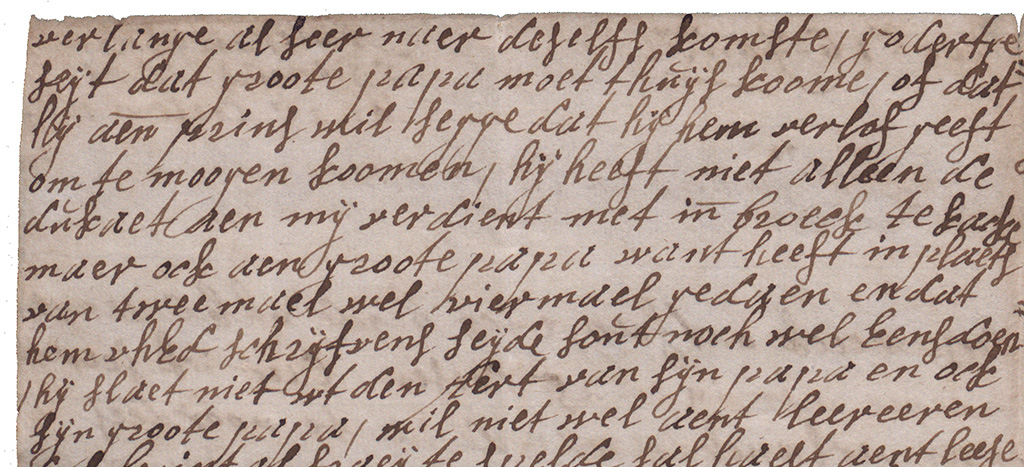 verlange al seer naer deselfs komste, godertie
seijt dat groote papa moet thuijs koome, of dat
hij aen prins wil segge dat hij hem verlof geeft
om te moogen koomen, hij heeft niet alleen de
dukaet aen mij verdient met in broeck te kacke
maer ock aen groote papa want heeft in plaets
van twee mael wel viermael gedaen en dat
hem schrijvens seijde sout noch wel eens doen
hij slaet niet wt den aert van sijn papa en ock
sijn groote papa, wil niet wel aent leereeren
te spelde sal haest aent leese